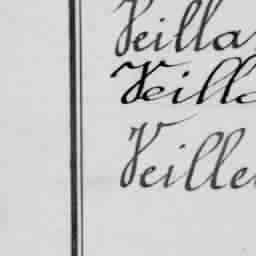 Veilla
Veilla
Veille